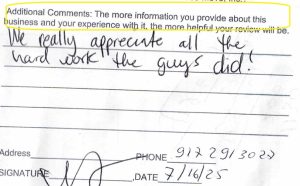 Additional Comments: The more information you provide about this
business and your experience with it, the more helpful your review will be.
We really appreciate all the
hard work the guys did!
Address
PHONE 917 291 3027
SIGNATURE
DATE 7/16/25